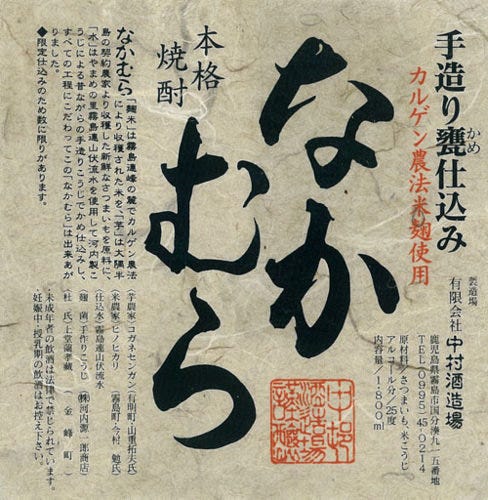 手造り甕仕込み
かめ
カルゲン農法米麹使用
製造場
有限会社 中村酒造場
鹿児島県霧島市国分湊九一五番地
TEL(0995)45-0214
原材料/さつまいも、米こうじ
アルコール分/25度
内容量/1・800ml
なか
むら
本格
焼酎
なかむら「麹米」は霧島連峰の麓でカルゲン農法
により収穫された米を、「芋」は大隅半
島の契約農家より収穫した新鮮なさつまいもを原料に、
「水」はやまめの里霧島連山伏流水を使用して河内製こ
うじによる昔ながらの手造りこうじでかめ仕込みし、
すべての工程にこだわってこの「なかむら」は出来あが
りました。
◆限定仕込みのため数に限りがあります。
(芋農家)コガネセンガン(有明町・山重拓夫氏)
(米農家)ヒノヒカリ(霧島町・今村 勉氏)
(仕込水)霧島連山伏流水
(麹 菌)手作りこうじ(㈱河内源一郎商店)
(杜 氏)上堂薗孝蔵(金峰町)
・未成年者の飲酒は法律で禁じられています。
・妊娠中・授乳期の飲酒はお控え下さい。
中村
酒造場
謹醸